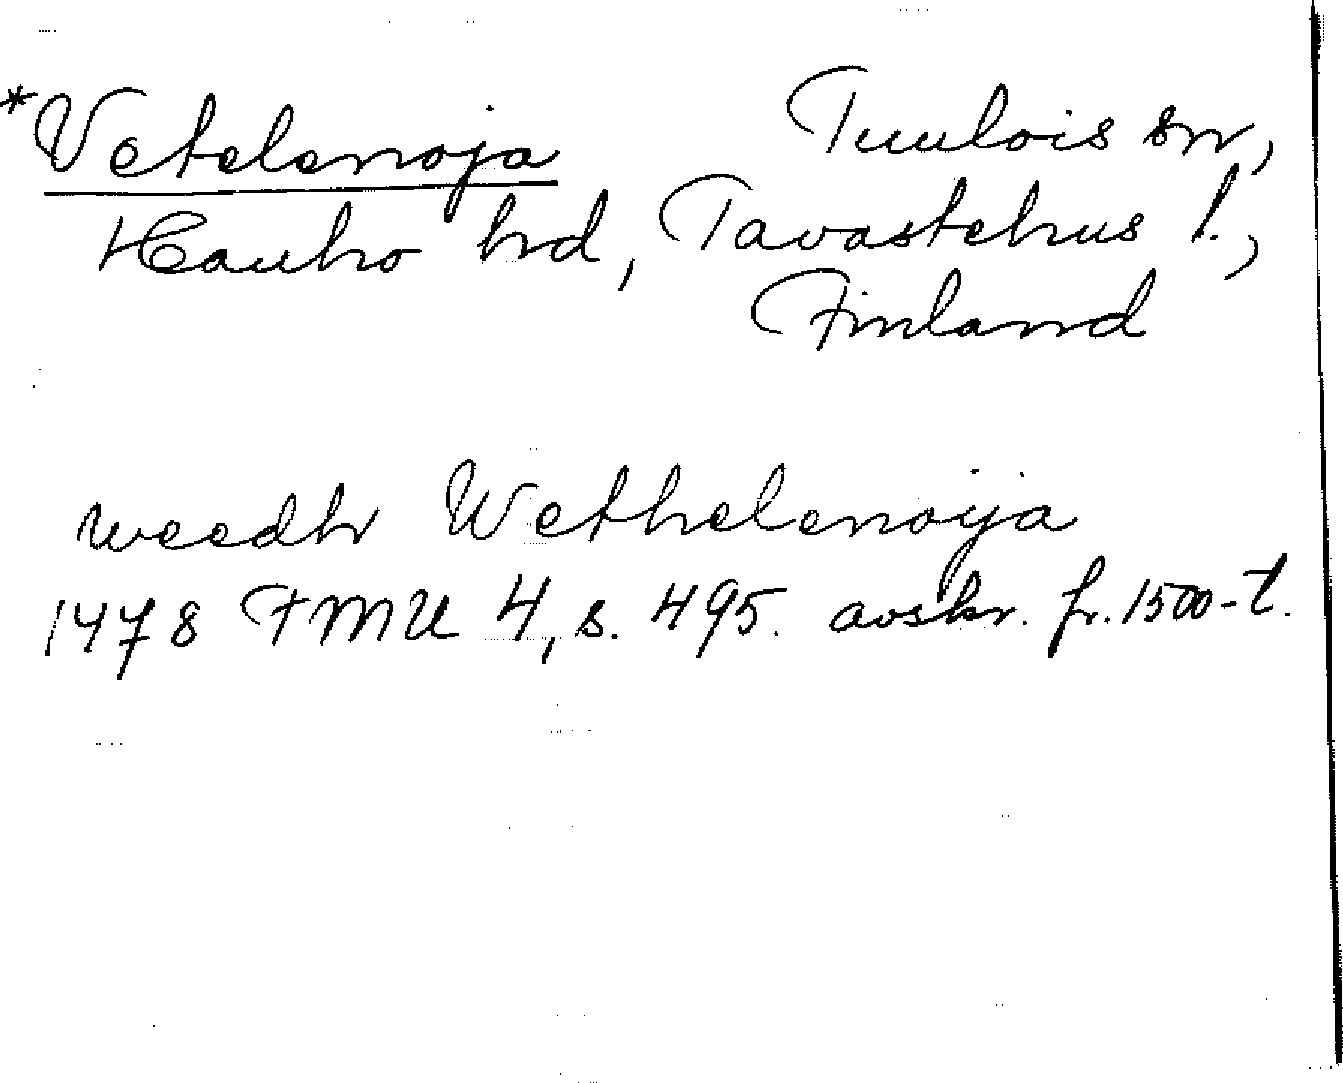 *Vetelenoja Tuulois sn,
Hauho hd, Tavastehus l.,
Finland
weedh Wethelenoija
1478 FMU 4, s. 495. avskr. fr. 1500-t.